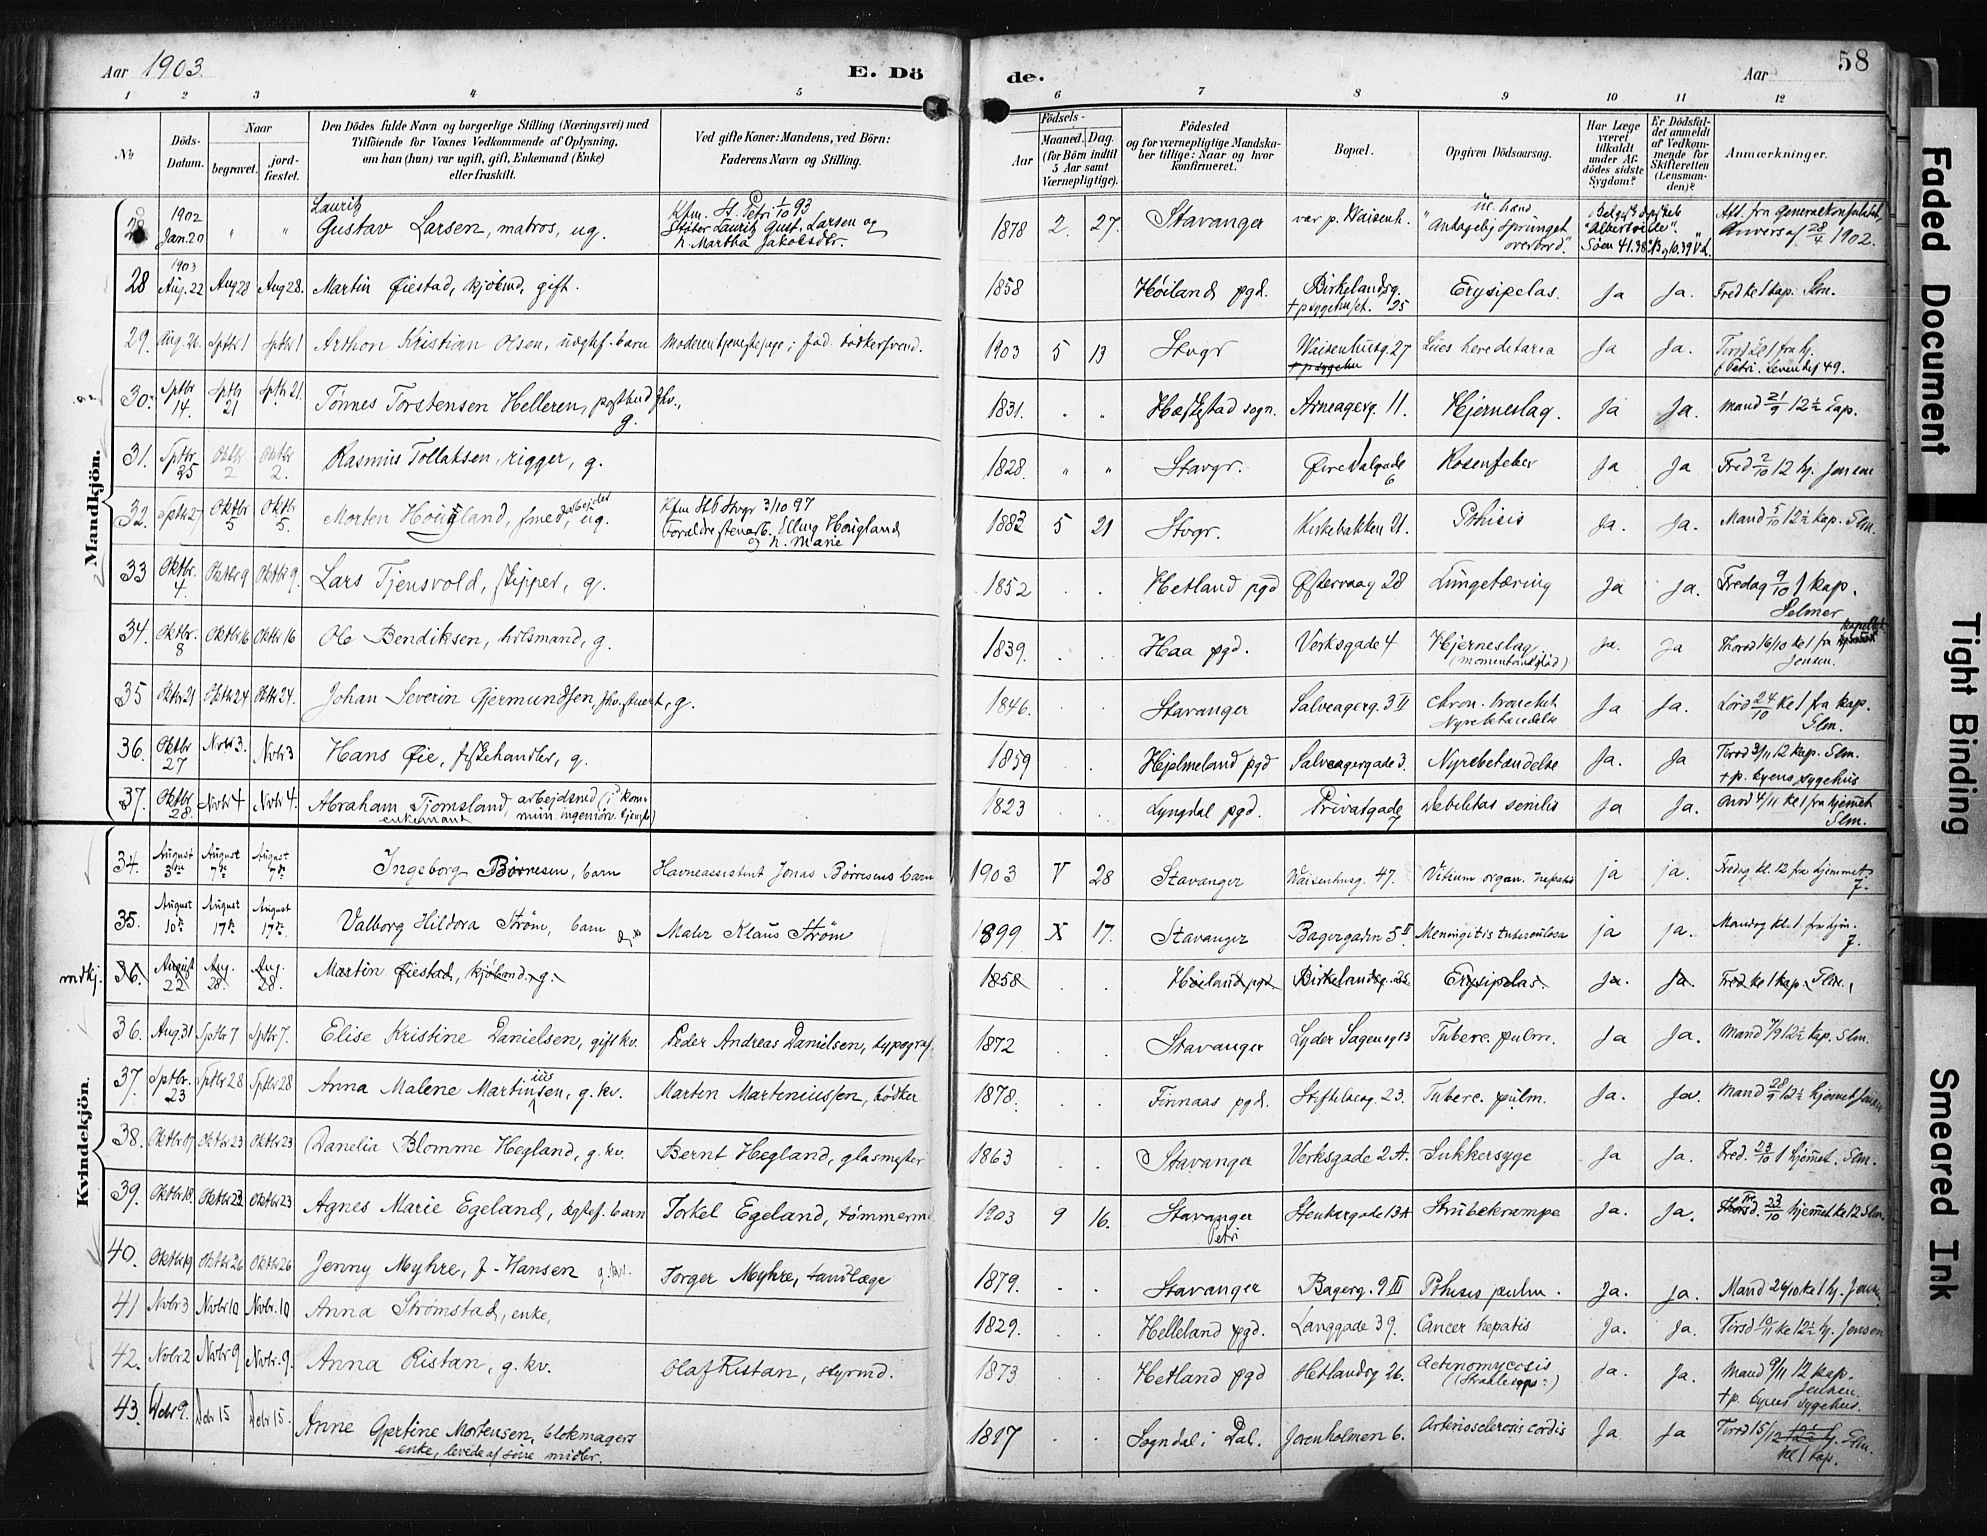 Aar 1903.
E. Dö
de.
Aar
58
1 2 3 4 5 6 7 8 9 10 11 12
No
Döds-Datum.
Naar
begravet.
jordfæstet.
Den Dödes fulde Navn og borgerlige Stilling (Næringsvei) med
Tilföiende for Voxnes Vedkommende af Oplysning,
om han (hun) var ugift, gift, Enkemand (Enke)
eller fraskilt.
Ved gifte Koner: Mandens, ved Börn:
Faderens Navn og Stilling.
Födsels-
Aar
Maaned. Dag.
(for Börn indtil
5 Aar samt
Værnepligtige).
Födested
og for værnepligtige Mandska-
ber tillige: Naar og hvor
konfirmeret.
Bopæl.
Opgiven Dödsaarsag.
Har Læge
været
tilkaldt
under Af-
dödes sidste
Sygdom?
Er Dödsfal-
det anmeldt
af Vedkom-
mende for
Skifteretten
(Lensman-
den)?
Anmærkninger.
Mandkjön.
1902 Jan. 20 " " Lauritz Gustav Larsen, matros, ug. Kfm. St. Petri 1/10 93 Laurits Gust. Larsen og h. Martha Jakobsdtr. 1878 2. 27. Stavanger var p. Waisenh. sprunget overbord". "Albertville". Att. fra Generalkonsulatet Anvers af 28/4 1902.
28 1903 Aug. 22 Aug 28 Aug 28. Martin Øiestad, kjøbmd, gift. 1858 Høiland pgd. Birkelandsg. 25 † p sygehuset. Erysipelas. Ja Ja. Fred kl 1 kap. Slm.
29. Aug. 26. Sptbr 1 Sptbr 1 Arthon Kristian Olsen, uægtef. barn Moderen tjenestepige; fad. bødkersvend. 1903 5 13 Stvgr Waisenhusg. 27 Lues hereditaria Ja Ja. f Petri. Levendef 49.
30. Sptbr 14. Sptbr 21 Sptbr 21. Tønnes Torstensen Helleren, postbud fhv., g. 1831. " " Hæskestad sogn. Arneagerg. 11. Hjerneslag. ja Ja. Mand 21/9 12 1/2 Kap.
31. Sptbr. 25 Oktbr 2 Oktbr 2. Rasmus Tollaksen, rigger, g. 1828. " " Stavgr. Øvre Dalgade 6 Rosenfeber Ja Ja Fred 2/10 12 hj. Jensen
32. Sptbr 27 Oktbr 5 Oktbr 5. Morten Hougland, smedarbeider, ug. Kfm Stvgr 3/10 97 Forældre Elling Hougland og h. Marie 1883 5 21 Stvgr. Kirkebakken 21. Pthisis Ja. Ja. Mand 5/10 12 1/2 kap. Slm.
33 Oktbr. 4 Oktbr 9 Oktbr 9. Lars Tjensvold, skipper, g. 1852 . . Hetland pgd Østervaag 28 Lungetæring Ja Ja. Fredag 9/10 1 kap. Selmer
34. Oktbr. 8 Oktbr 16 Oktbr 16 Ole Bendiksen, g. 1839. . . Haa pgd. Verksgade 4 Hjerneslag. Ja. ja 16/10 kl 1 fra kapellet Jensen.
35 Oktbr 21 Oktbr 24 Oktbr 24. Johan Severin Gjermundsen, fhv. stuert, g. 1846. . . Stavanger Salveagerg. 3 II chron. bronchit Nyrebetændelse Ja Ja. Lørd 24/10 kl 1 fra kap. Slm.
36. Oktbr 27 Novbr 3. Novbr 3 Hans Øie, fiskehandler, g. 1859 . . Hjelmeland pgd Salveagergade 3. Nyrebetændelse Ja. Ja Tirsd 3/11 12 kap. Slm. † p. byens sygehus
37. Oktbr 28. Novbr 4 Novbr 4. Abraham Tjomsland, arbejdsmd (i kommun. ingeniørv. tjeneste) enkemand 1823 . . Lyngdal pgd. Privatgade 7 debilitas senilis Ja Ja. Onsd 4/11 kl 1 fra hjemmet Slm.
Kvindekjön.
34. August 3die August 7de August 7de Ingeborg Børresen, barn Havneassistent Jonas Børresens barn 1903 V 28 Stavanger Waisenhusg. 47. Vitium organ. hepatis ja ja. Fredag kl. 12 fra hjemmet. J.
35. August 10de August 17de August 17de. Valborg Hildora Strøm, barn Maler Klaus Strøm 1899 X 17. Stavanger Bagergaden 5 II Meningitis tuberculosa ja ja. Mandag kl. 1 fra hjm. J.
mdkj. 36. August 22 Aug. 28. Aug. 28. Martin Øiestad, kjøbmd. g. 1858 . . Høiland pgd. Birkelandsg. 25 Erysipelas. Ja. Ja. Fred kl 1 kap. Slm.
36. Aug. 31 Sptbr 7 Sptbr 7. Elise Kristine Danielsen, gift kv. Peder Andreas Danielsen, typograf. 1872 . . Stavanger Lyder Sagensg 13 Tuberc. pulm. Ja Ja. Mand 7/9 12 1/2 kap. Slm.
37. Sptbr. 23 Sptbr 28 Sptbr 28 Anna Malene Martiniussen, g. kv. Martin Martiniussen, bødker 1878. . . Finnaas pgd. Stiftelsesg. 23. Tuberc. pulm. Ja. Ja. Mand 28/9 12 1/2 hjemmet Jensen
38. Oktbr 17 Oktbr 23 Oktbr 23 Danelia Blomme Hegland, g. kv. Bernt Hegland, glasmester 1863 . . Stavanger Verksgade 2 A. Sukkersyge Ja Ja. Fred. 23/10 1 hjemmet. Slm.
39. Oktbr 18. Oktbr 23 Oktbr 23 Agnes Marie Egeland, ægtef. barn Torkel Egeland, tømmermd 1903 9 16. Stavanger Petri Stenkargade 13 A Strubekrampe Ja. Ja. 23/10 hjemmet kl 12 Slm.
40. Oktbr 19 Oktbr 26 Oktbr 26 Jenny Myhre, f. Hansen g. kv. Torger Myhre, tandlæge 1879. . . Stavanger Bagerg. 9 III Pthisis pulm. Ja. Ja. Mand 26/10 kl 1 hj. Jensen
41 Novbr 3 Novbr 10 Novbr. 10 Anna Strømstad, enke, 1829. . . Helleland pgd. Langgade 39. Cancer hepatis Ja. Ja. Tirsd 10/11 kl 12 1/2 hj. Jensen
42. Novbr 2 Novbr 9 Novbr. 9. Anna Ristan, g. kv. Olaf Ristan, styrmd. 1873 . . Hetland pgd Hetlandsg 26. Actinomycosis Ja. Ja. Mand 9/11 12 kap. Jensen. † p. byens sygehus.
43. Debr 9. Debr 15 Debr 15. Anne Gjertine Mortensen, blokmagers enke, levede af sine midler. 1817 . . Sogndal i Dal. Jorenholmen 6. Arteriosclerosis cordis Ja Ja Tirsd 15/12 12 1/2 hj. Slm. kl 1 kap.
Faded Document
Tight Binding
Smeared Ink